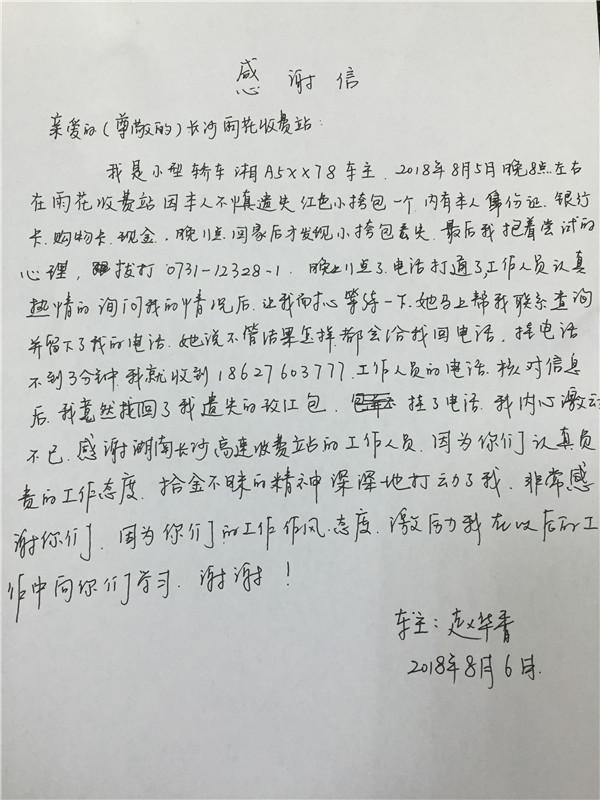 感谢信
亲爱的(尊敬的)长沙雨花收费站:
我是小型轿车湘A5XX78车主.2018年8月5日晚8点左右
在雨花收费站因本人不慎遗失红色小挎包一个,内有本人身份证.银行
卡.购物卡.现金.晚11点回家后才发现小挎包丢失.最后我抱着尝试的
心理,拨打0731-12328-1.晚上11点了.电话打通了,工作人员认真
热情的询问我的情况后.让我耐心等待一下.她马上帮我联系查询
并留下了我的电话.她说不管结果怎样都会给我回电话.挂电话
不到3分钟.我就收到18627603777.工作人员的电话.核对信息
后.我竟然找回了我遗失的红包.挂了电话.我内心激动
不已.感谢湖南长沙高速收费站的工作人员.因为你们认真负
责的工作态度.拾金不昧的精神深深地打动了我.非常感
谢你们.因为你们的工作作风.态度.激励我在以后的工
作中向你们学习.谢谢!
车主:赵华香
2018年8月6日.